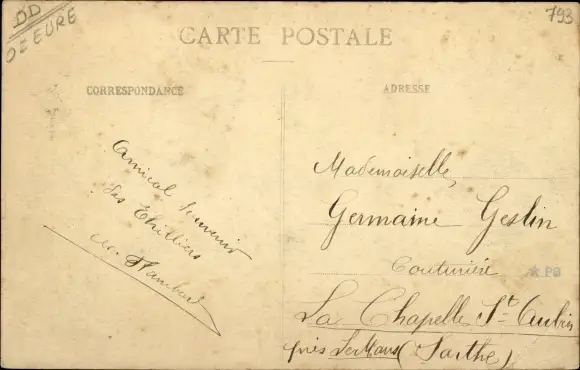 DD
DE EURE
793
CARTE POSTALE
CORRESPONDANCE
ADRESSE
Amical Souvenir
des Thilliers
Mademoiselle,
Germaine Geslin
Couturière
★ PG
La Chapelle St Aubin
près Le Mans (Sarthe)